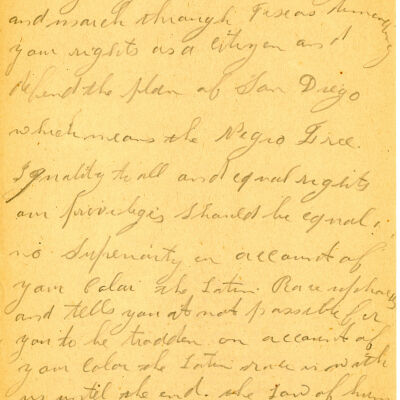 and march through Texas demanding
your rights as a citizen and
defend the plan of San Diego
which means the Negro Free.
Equality to all and equal rights
our priviledges should be equal
no Superiority on account of
your Color the Latin Race upholds
and tells you it not possible for
you to be trodden on account of
your Color the Latin race is with
us until the end. The Law of